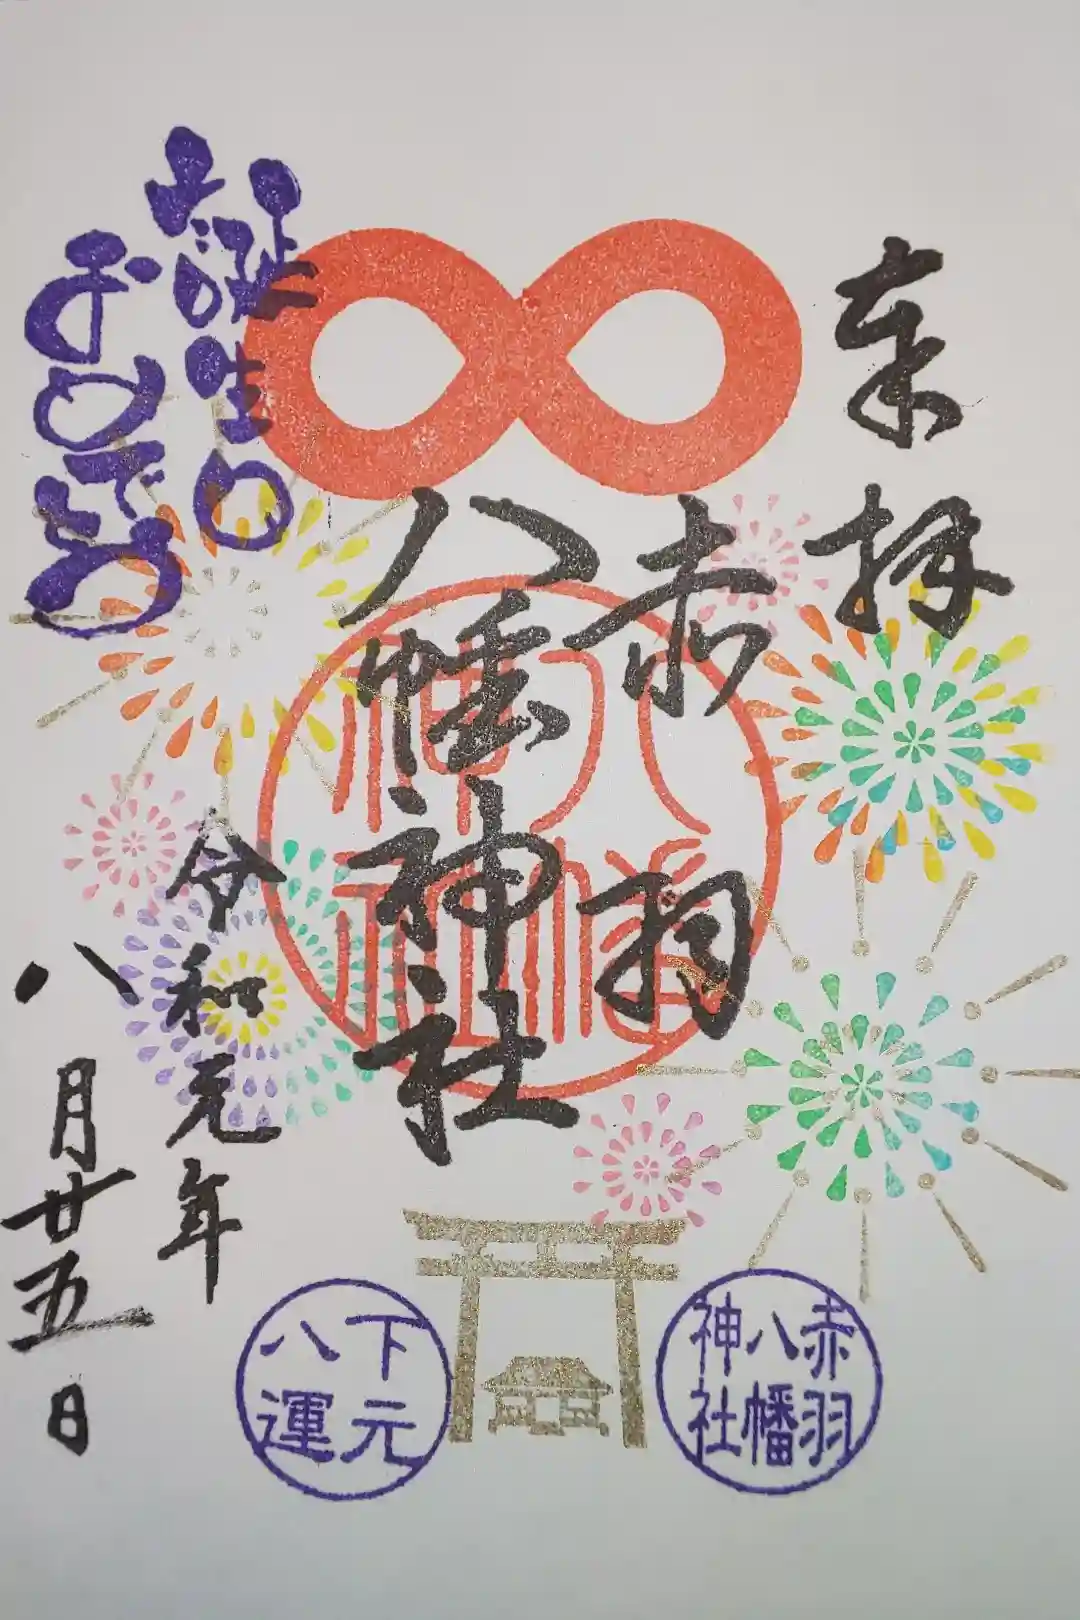 奉拝
赤羽
八幡神社
八幡
神社
令和元年
八月廿五日
お誕生日
おめでとう
赤羽
八幡
神社
下元
八運